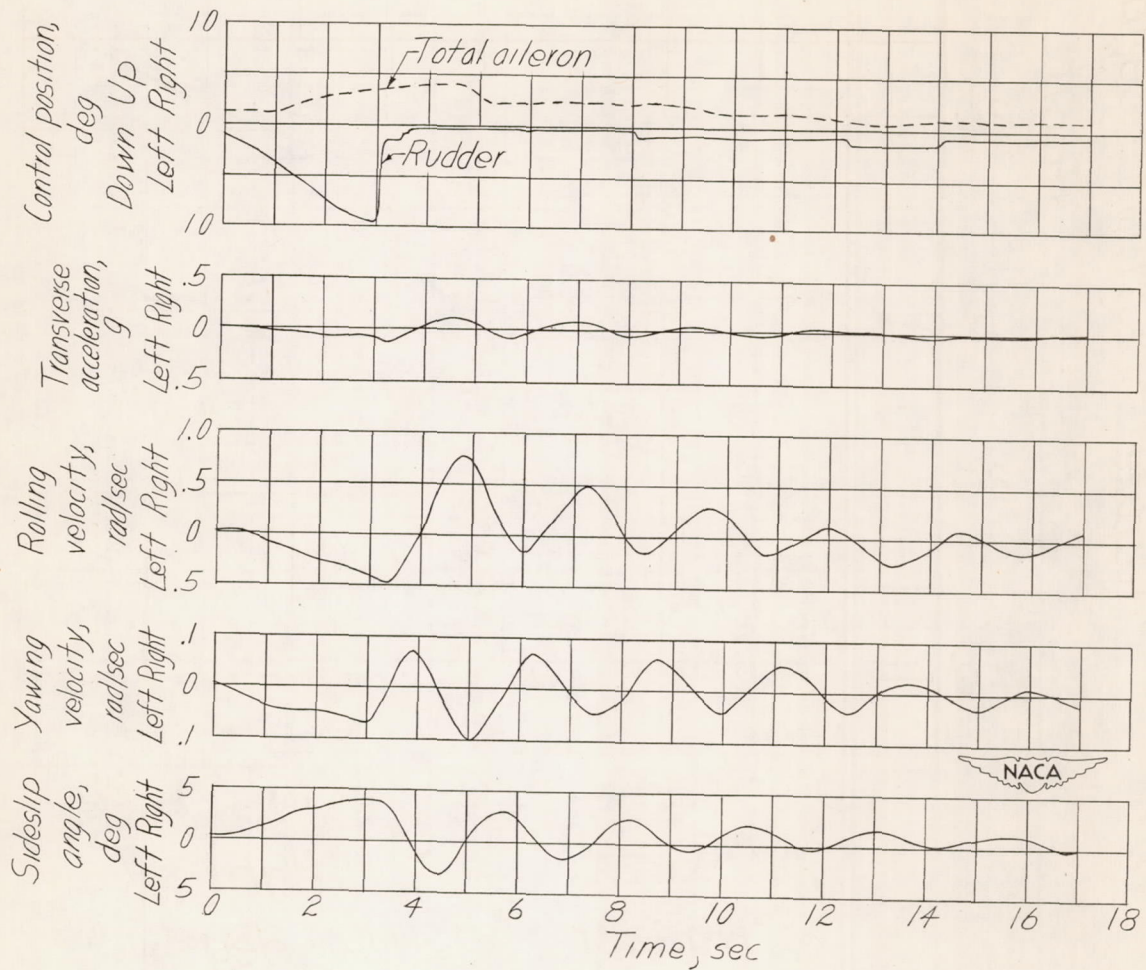 Control position,
deg
Down Up
Left Right
10
0
10
Total aileron
Rudder
Transverse
acceleration,
g
Left Right
.5
0
.5
Rolling
velocity,
rad/sec
Left Right
1.0
.5
0
.5
Yawing
velocity,
rad/sec
Left Right
.1
0
.1
NACA
Sideslip
angle,
deg
Left Right
5
0
5
0 2 4 6 8 10 12 14 16 18
Time, sec